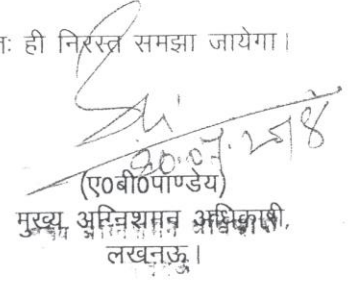 ही निरस्त समझा जायेगा।
20.07.2018
(ए०बी०पाण्डेय)
मुख्य अग्निशमन अधिकारी,
लखनऊ।